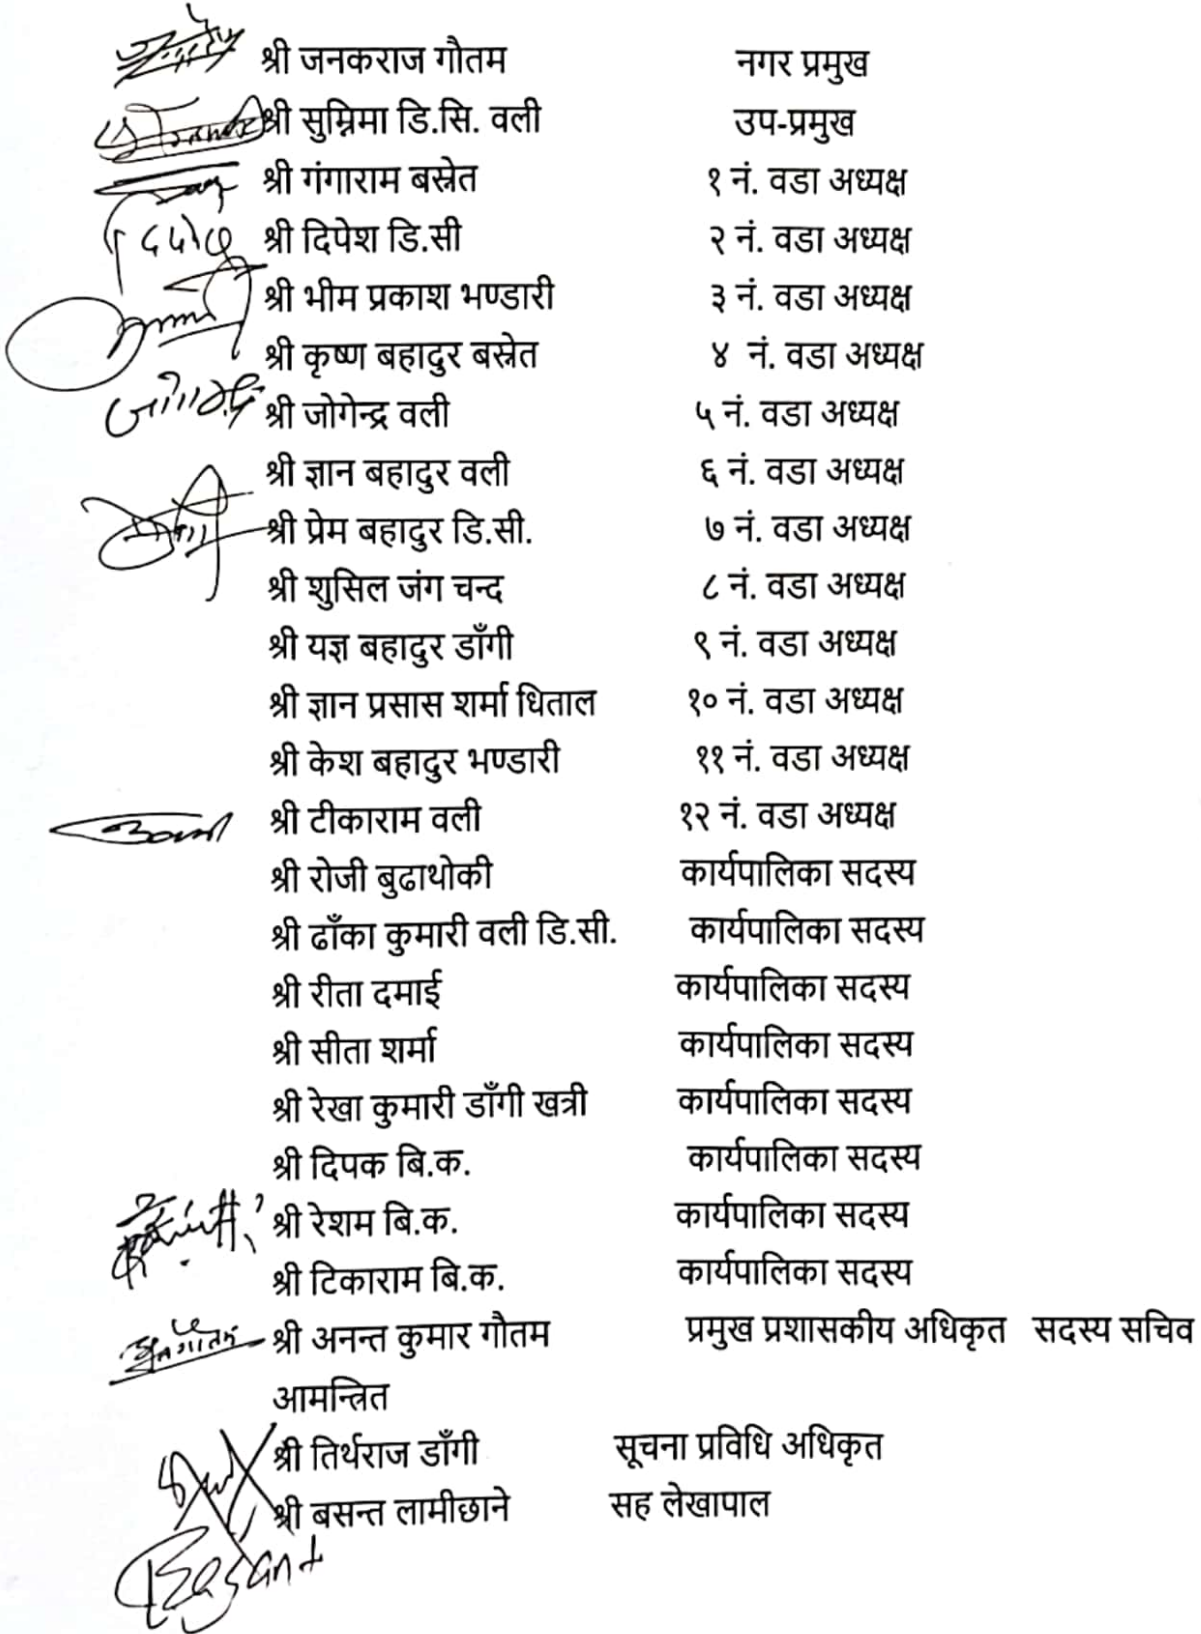 श्री जनकराज गौतम नगर प्रमुख
श्री सुम्निमा डि.सि. वली उप-प्रमुख
श्री गंगाराम बस्नेत १ नं. वडा अध्यक्ष
श्री दिपेश डि.सी २ नं. वडा अध्यक्ष
श्री भीम प्रकाश भण्डारी ३ नं. वडा अध्यक्ष
श्री कृष्ण बहादुर बस्नेत ४ नं. वडा अध्यक्ष
श्री जोगेन्द्र वली ५ नं. वडा अध्यक्ष
श्री ज्ञान बहादुर वली ६ नं. वडा अध्यक्ष
श्री प्रेम बहादुर डि.सी. ७ नं. वडा अध्यक्ष
श्री शुसिल जंग चन्द ८ नं. वडा अध्यक्ष
श्री यज्ञ बहादुर डाँगी ९ नं. वडा अध्यक्ष
श्री ज्ञान प्रसास शर्मा धिताल १० नं. वडा अध्यक्ष
श्री केश बहादुर भण्डारी ११ नं. वडा अध्यक्ष
श्री टीकाराम वली १२ नं. वडा अध्यक्ष
श्री रोजी बुढाथोकी कार्यपालिका सदस्य
श्री ढाँका कुमारी वली डि.सी. कार्यपालिका सदस्य
श्री रीता दमाई कार्यपालिका सदस्य
श्री सीता शर्मा कार्यपालिका सदस्य
श्री रेखा कुमारी डाँगी खत्री कार्यपालिका सदस्य
श्री दिपक बि.क. कार्यपालिका सदस्य
श्री रेशम बि.क. कार्यपालिका सदस्य
श्री टिकाराम बि.क. कार्यपालिका सदस्य
श्री अनन्त कुमार गौतम प्रमुख प्रशासकीय अधिकृत सदस्य सचिव
आमन्त्रित
श्री तिर्थराज डाँगी सूचना प्रविधि अधिकृत
श्री बसन्त लामीछाने सह लेखापाल
Basant